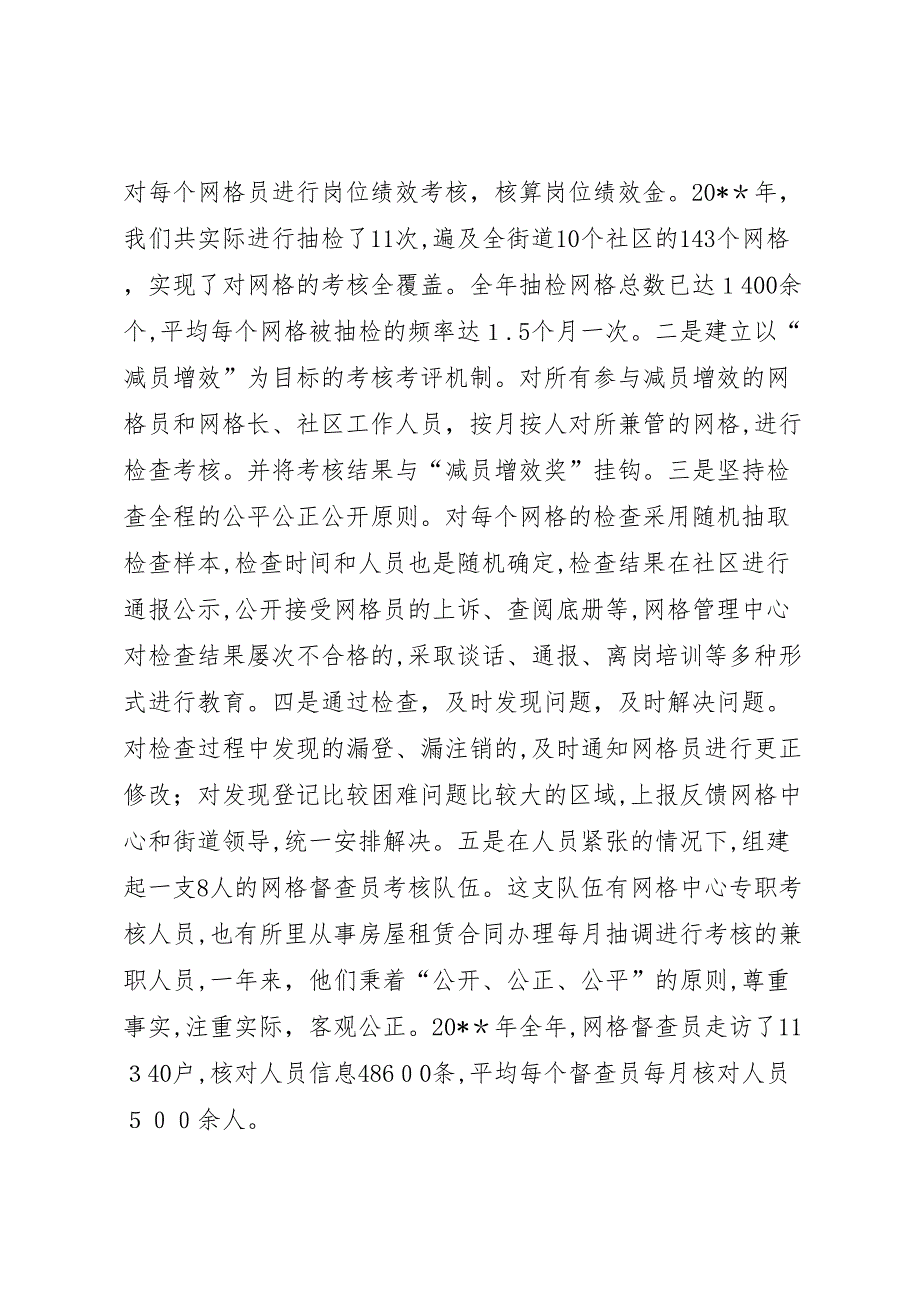 对每个网格员进行岗位绩效考核，核算岗位绩效金。20*＊年，
我们共实际进行抽检了11次,遍及全街道10个社区的143个网格
，实现了对网格的考核全覆盖。全年抽检网格总数已达１400余
个,平均每个网格被抽检的频率达１.5个月一次。二是建立以“
减员增效”为目标的考核考评机制。对所有参与减员增效的网
格员和网格长、社区工作人员，按月按人对所兼管的网格,进行
检查考核。并将考核结果与“减员增效奖”挂钩。三是坚持检
查全程的公平公正公开原则。对每个网格的检查采用随机抽取
检查样本,检查时间和人员也是随机确定,检查结果在社区进行
通报公示,公开接受网格员的上诉、查阅底册等,网格管理中心
对检查结果屡次不合格的,采取谈话、通报、离岗培训等多种形
式进行教育。四是通过检查，及时发现问题，及时解决问题。
对检查过程中发现的漏登、漏注销的,及时通知网格员进行更正
修改；对发现登记比较困难问题比较大的区域,上报反馈网格中
心和街道领导,统一安排解决。五是在人员紧张的情况下,组建
起一支8人的网格督查员考核队伍。这支队伍有网格中心专职考
核人员,也有所里从事房屋租赁合同办理每月抽调进行考核的兼
职人员,一年来，他们秉着“公开、公正、公平”的原则,尊重
事实,注重实际，客观公正。20*＊年全年,网格督查员走访了11
３40户,核对人员信息486００条,平均每个督查员每月核对人员
５００余人。